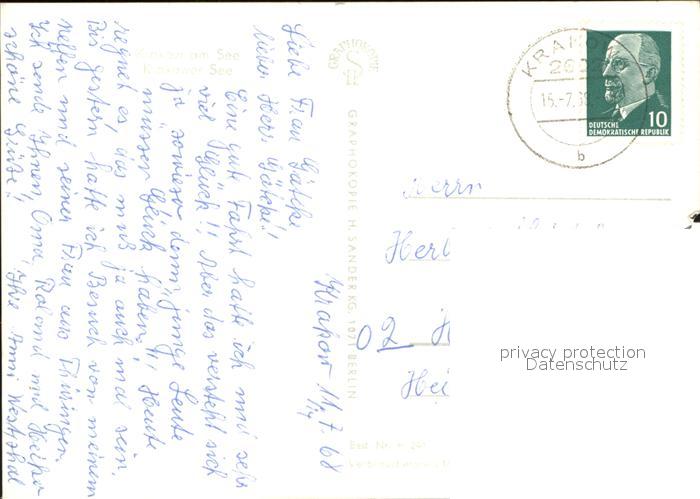 Krakow am See
Krakower See
Krakow 11/7 68
Liebe Frau
lieber Herr
Eine gute Fahrt hatte ich und sehr
viel Glück!! Aber das versteht sich
ja "sowieso" denn "junge Leute
müssen Glück haben"!! Heute
regnet es, das muß ja auch mal sein.
Bis gestern hatte ich Besuch von meinem
Neffen und seiner Frau aus Thüringen.
Ich sende Ihnen, Oma, Roland und Heike
schöne Grüße! Ihre Anni Westphal
GRAPHOKOPIE
GRAPHOKOPIE H. SANDER KG, 107 BERLIN
Best. Nr.
KRAKOW
15.-7.68
b
10
DEUTSCHE
DEMOKRATISCHE REPUBLIK
Herrn
Herb
02 H
Hei
privacy protection
Datenschutz